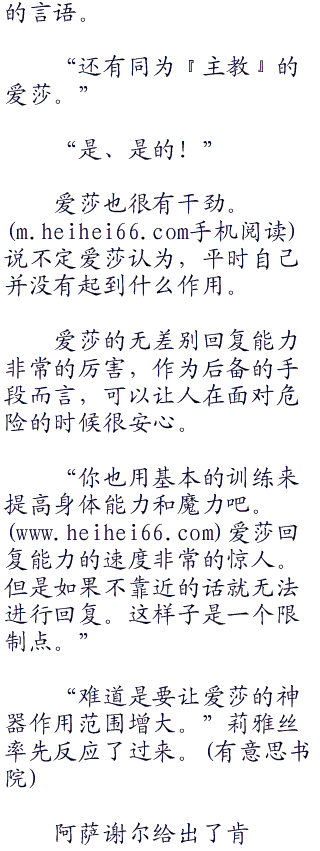 的言语。
“还有同为『主教』的
爱莎。”
“是、是的！”
爱莎也很有干劲。
(m.heihei66.com手机阅读)
说不定爱莎认为，平时自己
并没有起到什么作用。
爱莎的无差别回复能力
非常的厉害，作为后备的手
段而言，可以让人在面对危
险的时候很安心。
“你也用基本的训练来
提高身体能力和魔力吧。
(www.heihei66.com)爱莎回
复能力的速度非常的惊人。
但是如果不靠近的话就无法
进行回复。这样子是一个限
制点。”
“难道是要让爱莎的神
器作用范围增大。”莉雅丝
率先反应了过来。(有意思书
院)
阿萨谢尔给出了肯